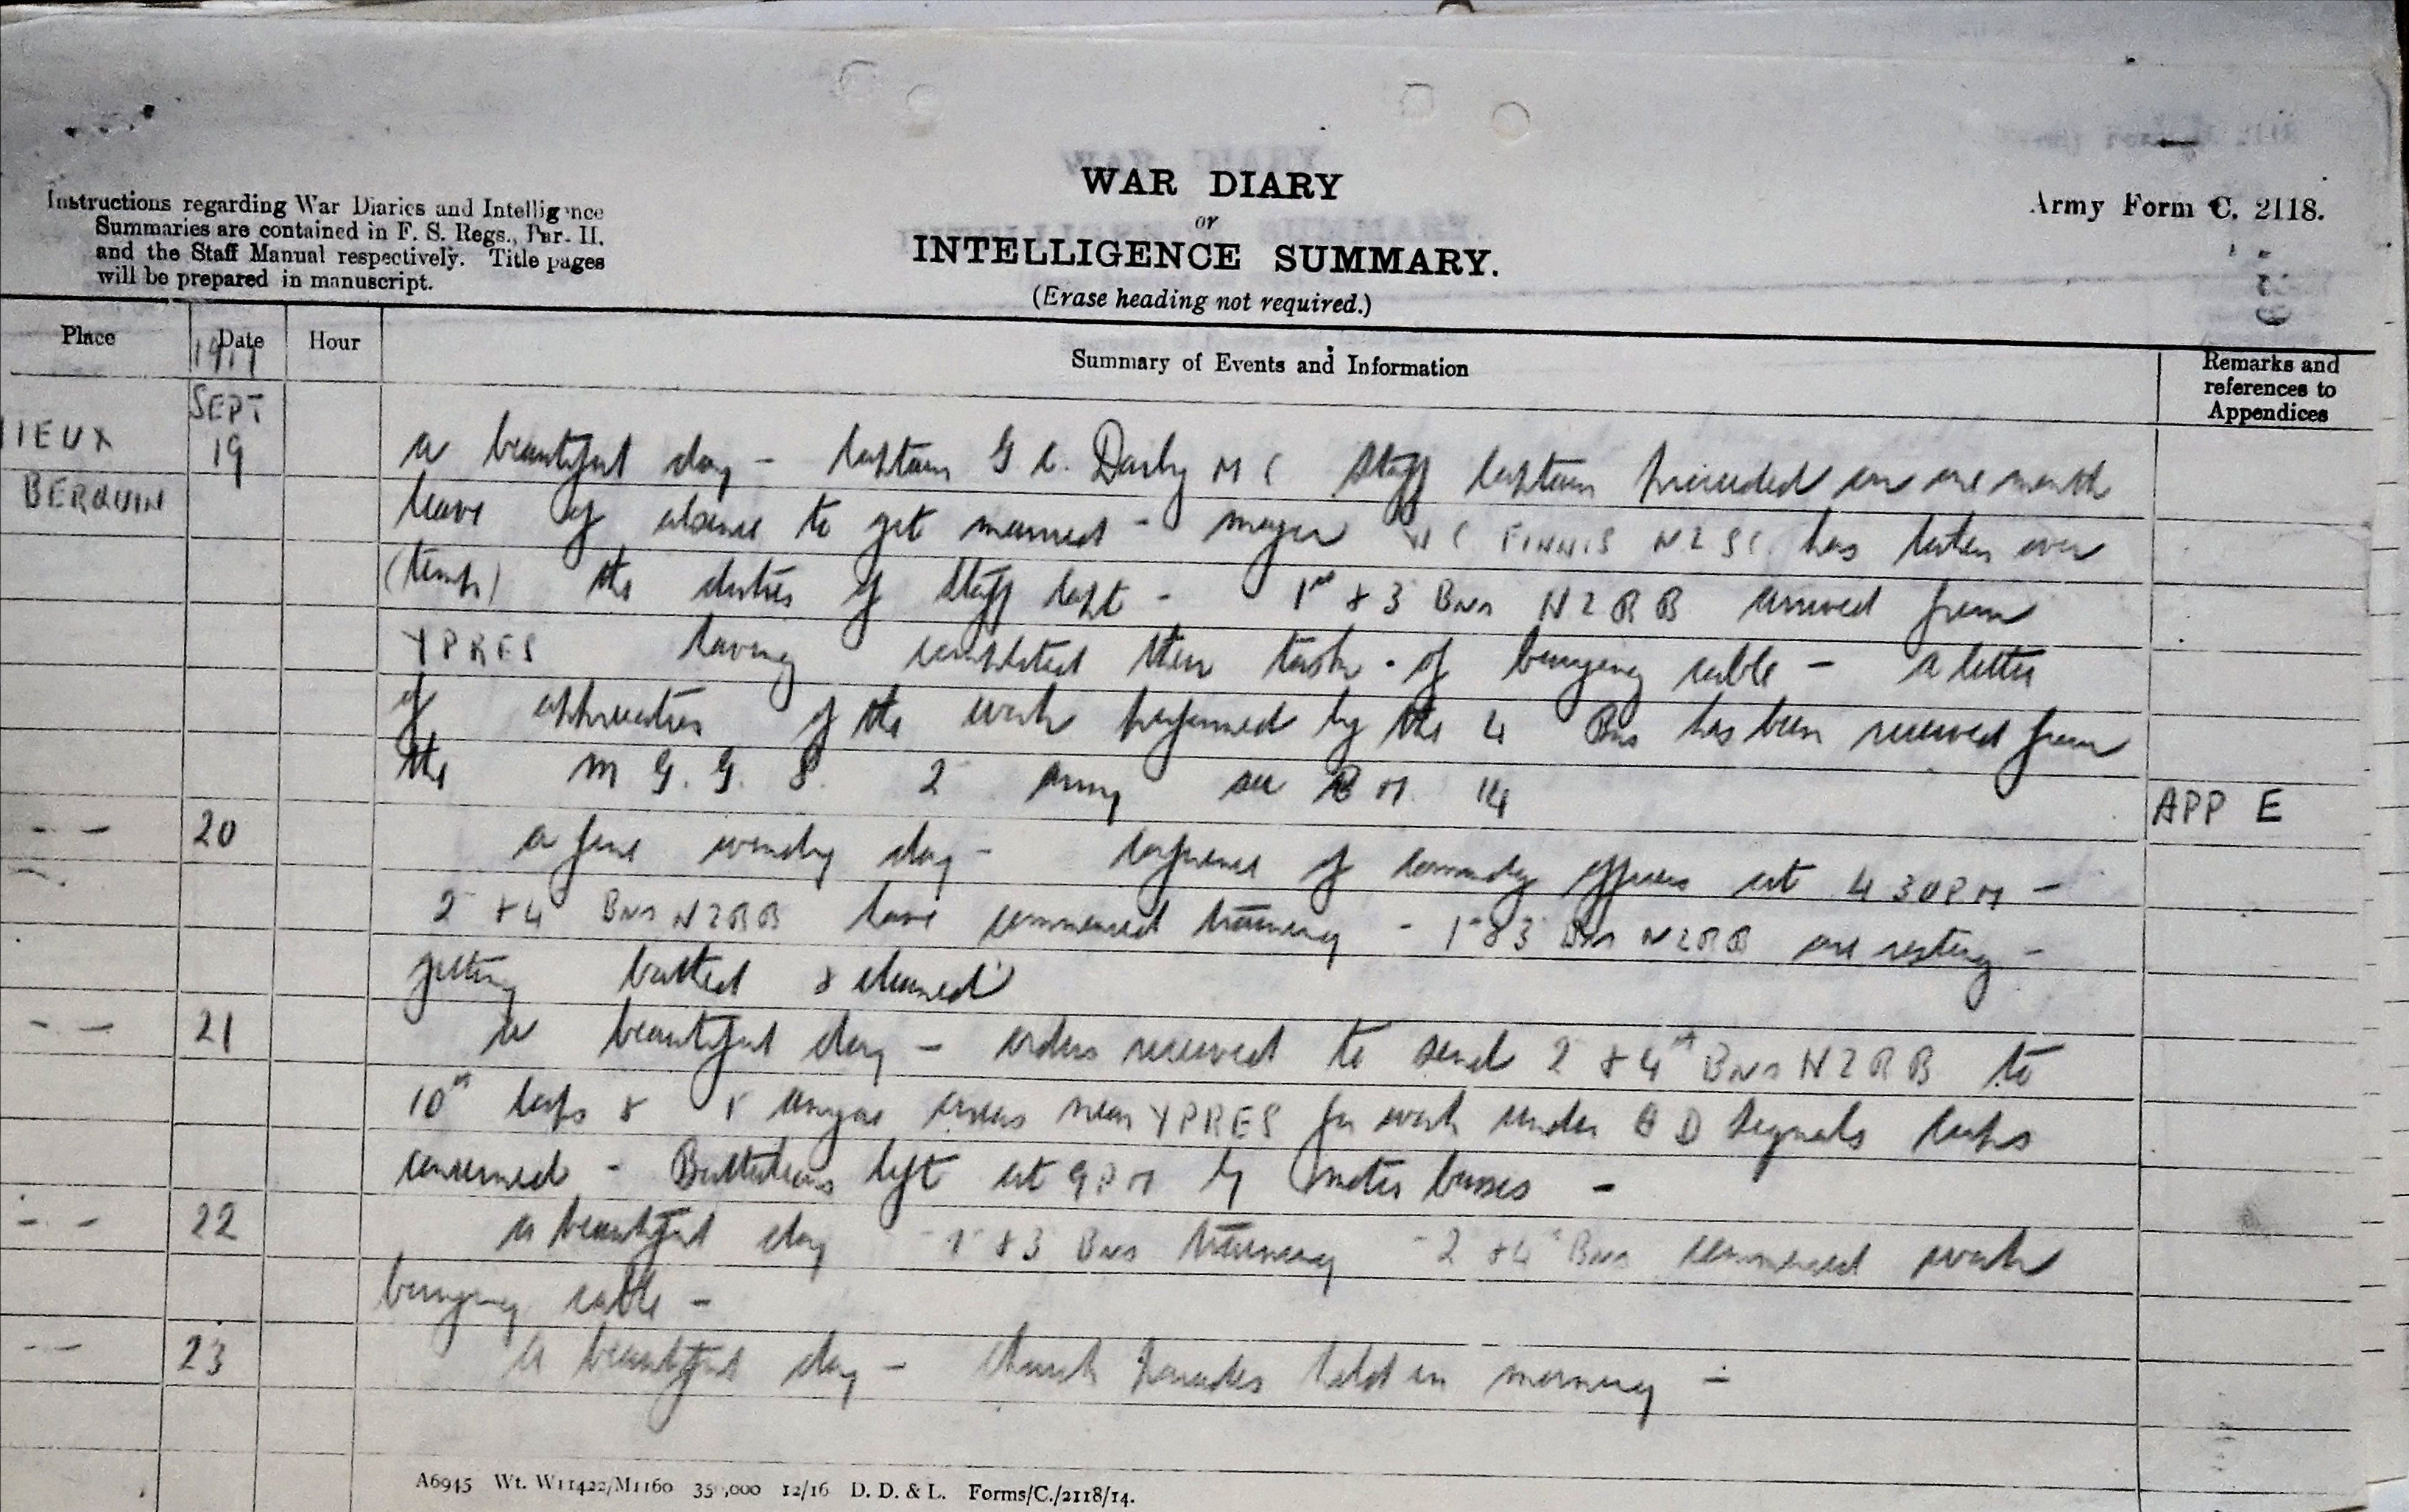 WAR DIARY
or
INTELLIGENCE SUMMARY.
(Erase heading not required.)
Instructions regarding War Diaries and Intelligence
Summaries are contained in F. S. Regs., Par. II.
and the Staff Manual respectively. Title pages
will be prepared in manuscript.
Army Form C. 2118.
Place Date Hour Summary of Events and Information Remarks and references to Appendices
1917
SEPT
IEUX 19 a beautiful day - Captain G C. Darby M C Staff Captain proceeded on one month
BERQUIN leave of absence to get married - major H C FINNIS NZSC has taken over
(temp) the duties of Staff Capt - 1st & 3 Bns NZRB arrived from
YPRES having completed their task of burying cable - a letter
of appreciation of the work performed by the 4 Bns has been received from
the M G. G. S. 2 Army see BM 14 APP E
- - 20 a fine windy day - conference of commdg officers at 4 30 PM -
2 & 4 Bns NZRB have commenced training - 1 & 3 Bns NZRB are resting -
getting bathed & cleaned
- - 21 a beautiful day - orders received to send 2 & 4th Bns NZRB to
10th Corps & areas near YPRES for work under A D Signals Corps
concerned - Battalions left at 9 PM by motor busses -
- - 22 a beautiful day - 1 & 3 Bns training - 2 & 4 Bns commenced work
burying cable -
- - 23 a beautiful day - church parades held in morning -
A6945 Wt. W11422/M1160 35 ,000 12/16 D. D. & L. Forms/C./2118/14.